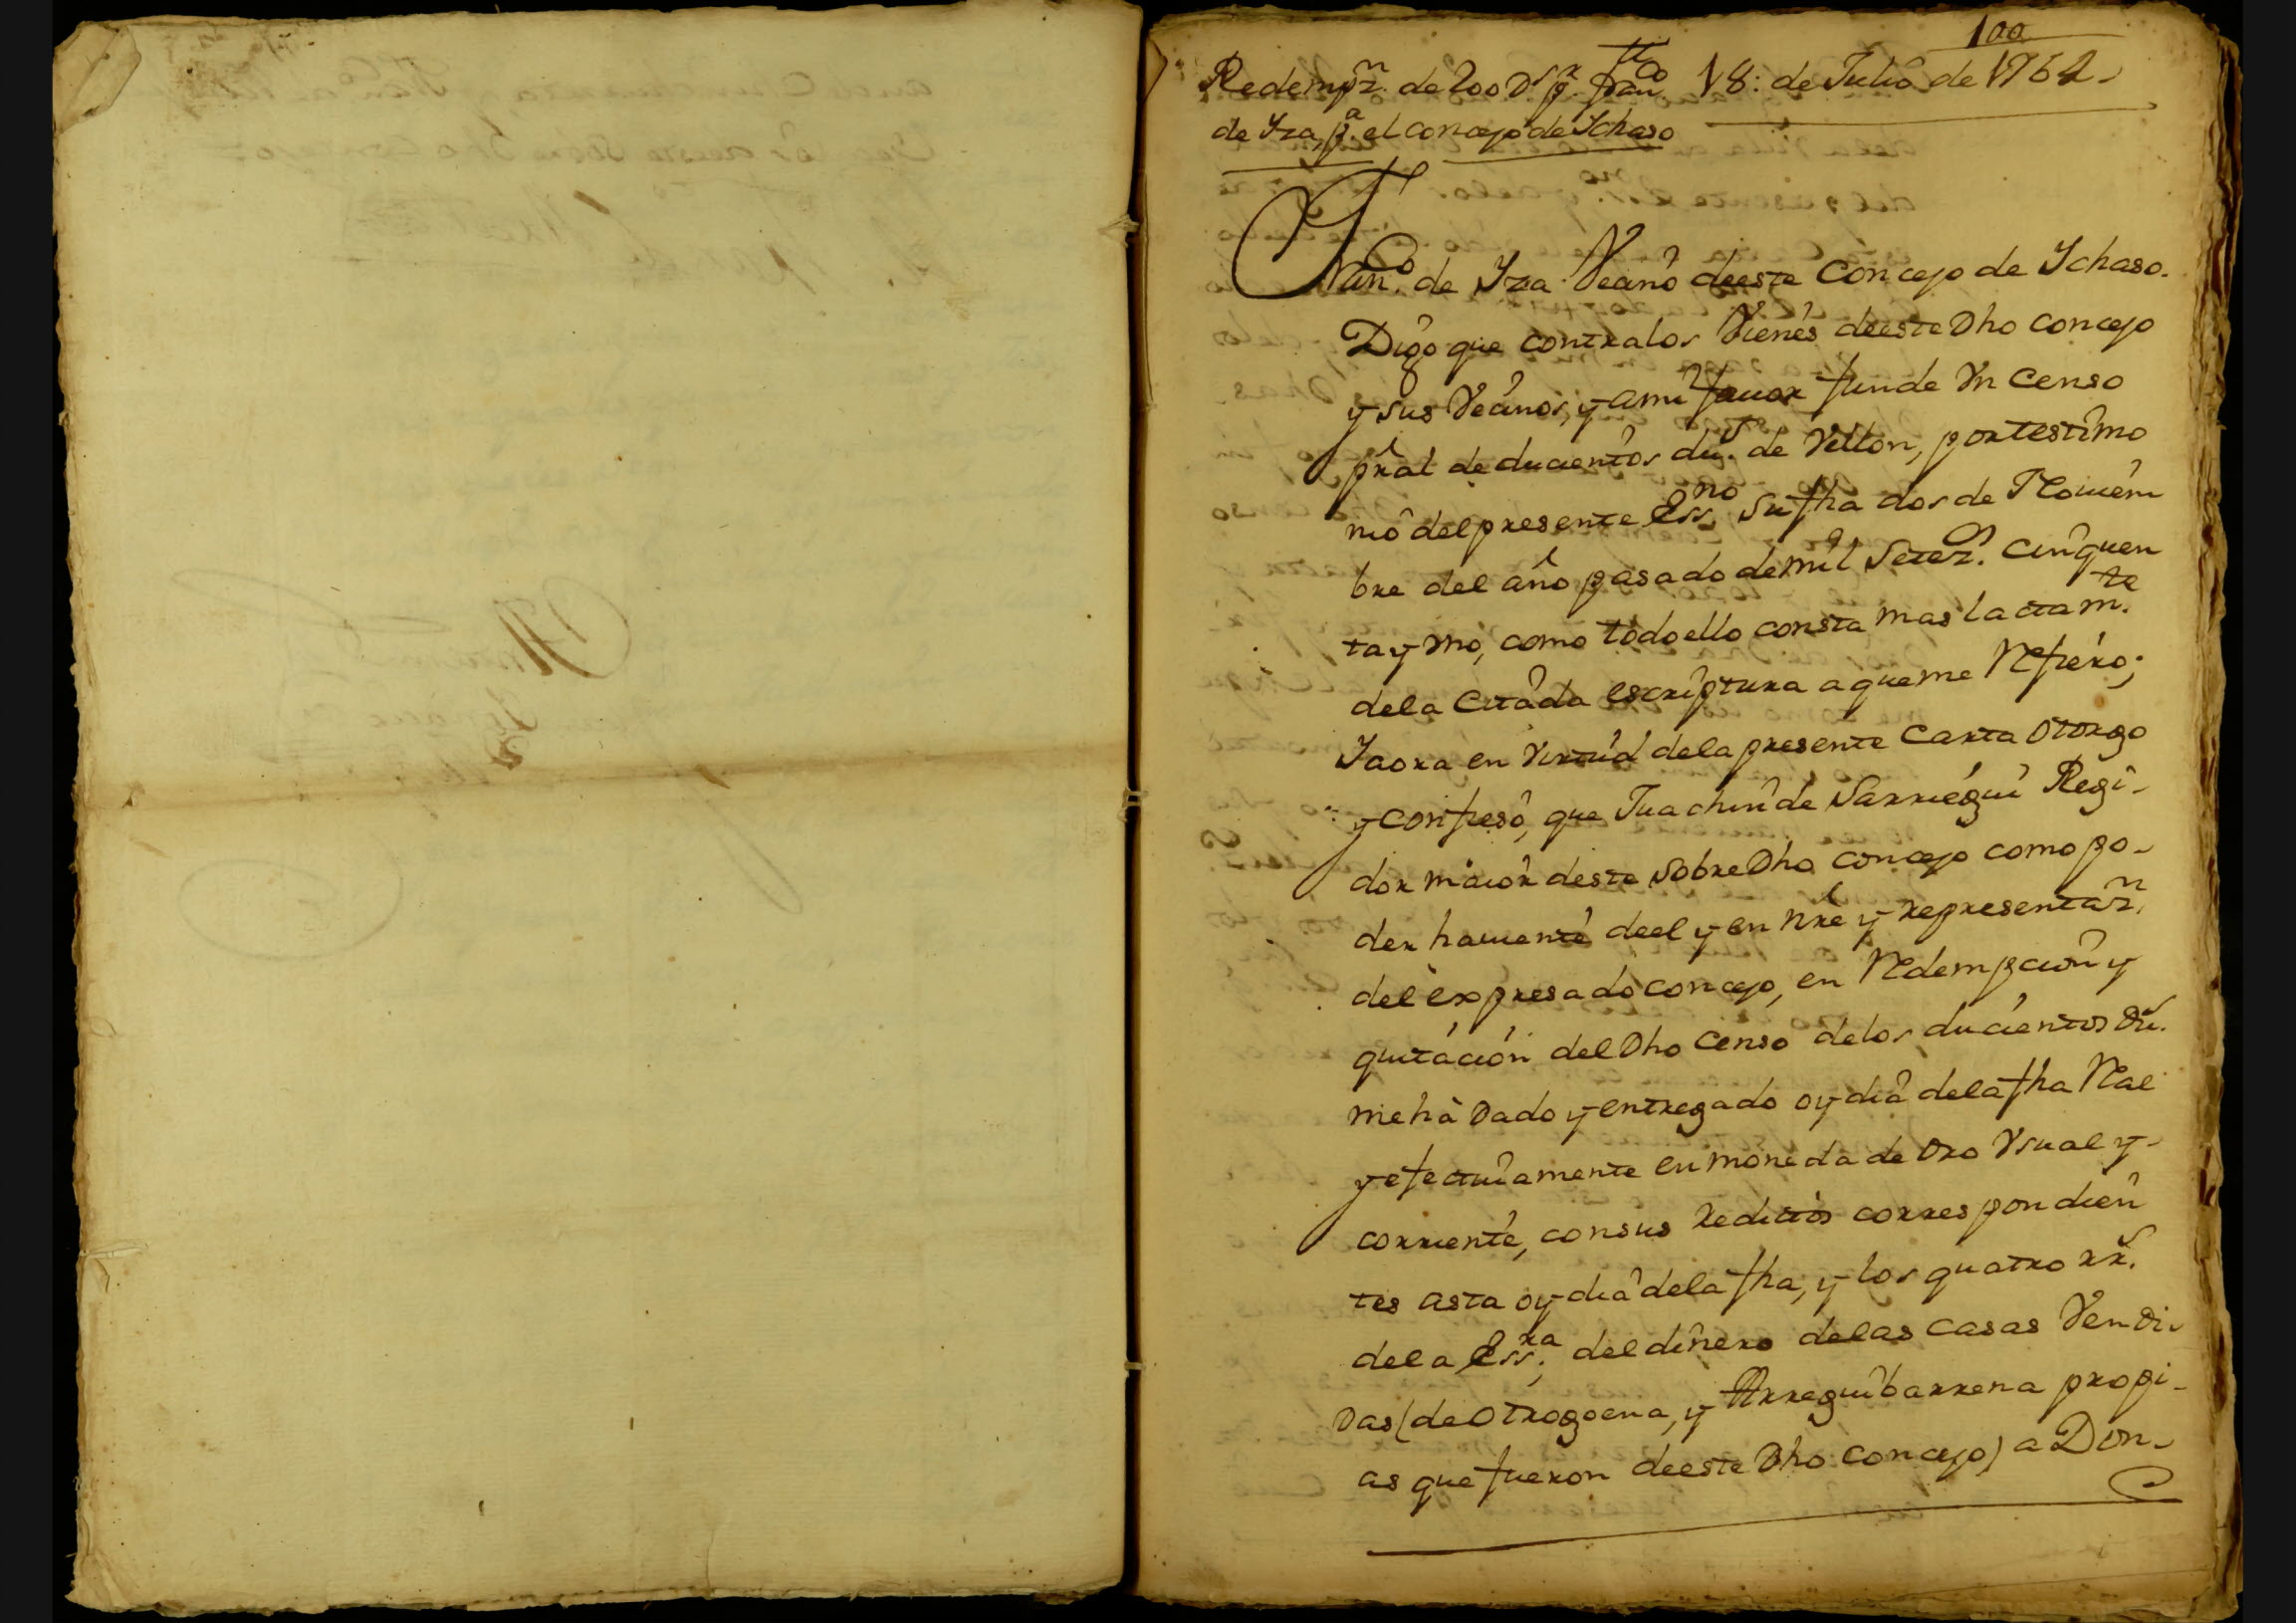 100
Redempzn. de 200 Ds. pr. Franco 18: de Julio de 1762
de Yza, pa. el concejo de Ychaso
Franco. de Yza Vecino de este Concejo de Ychaso.
Digo que contra los Vienes de este Dho concejo
y sus Vecinos, y a mi favor funde Vn Censo
pral de ducientos dus. de Vellon, por testimo
nio del presente Essno. su fha dos de Noviem
bre del año pasado de mil Setezs. cinquen
ta y vno, como todo ello consta mas lactamte.
de la Citada escriptura a que me Refiero;
Y aora en Virtud de la presente Carta Otorgo
y confieso, que Juachin de Sarriegui Regi-
dor maior deste Sobre Dho concejo como po-
der haviente de el y en nre y representazn.
del expresado concejo, en Redempcion y
quitacion del Dho Censo de los ducientos dus.
me hà Dado y entregado oy dia de la fha Rael
y efectivamente en moneda de Oro Vsual y-
corriente, con sus Reditos correspondien
tes asta oy dia de la fha, y los quatro rrs.
de la Essra. del dinero de las casas Vendi-
das (de Otrogoena, y Arreguibarrena propi-
as que fueron de este Dho concejo) a Don-